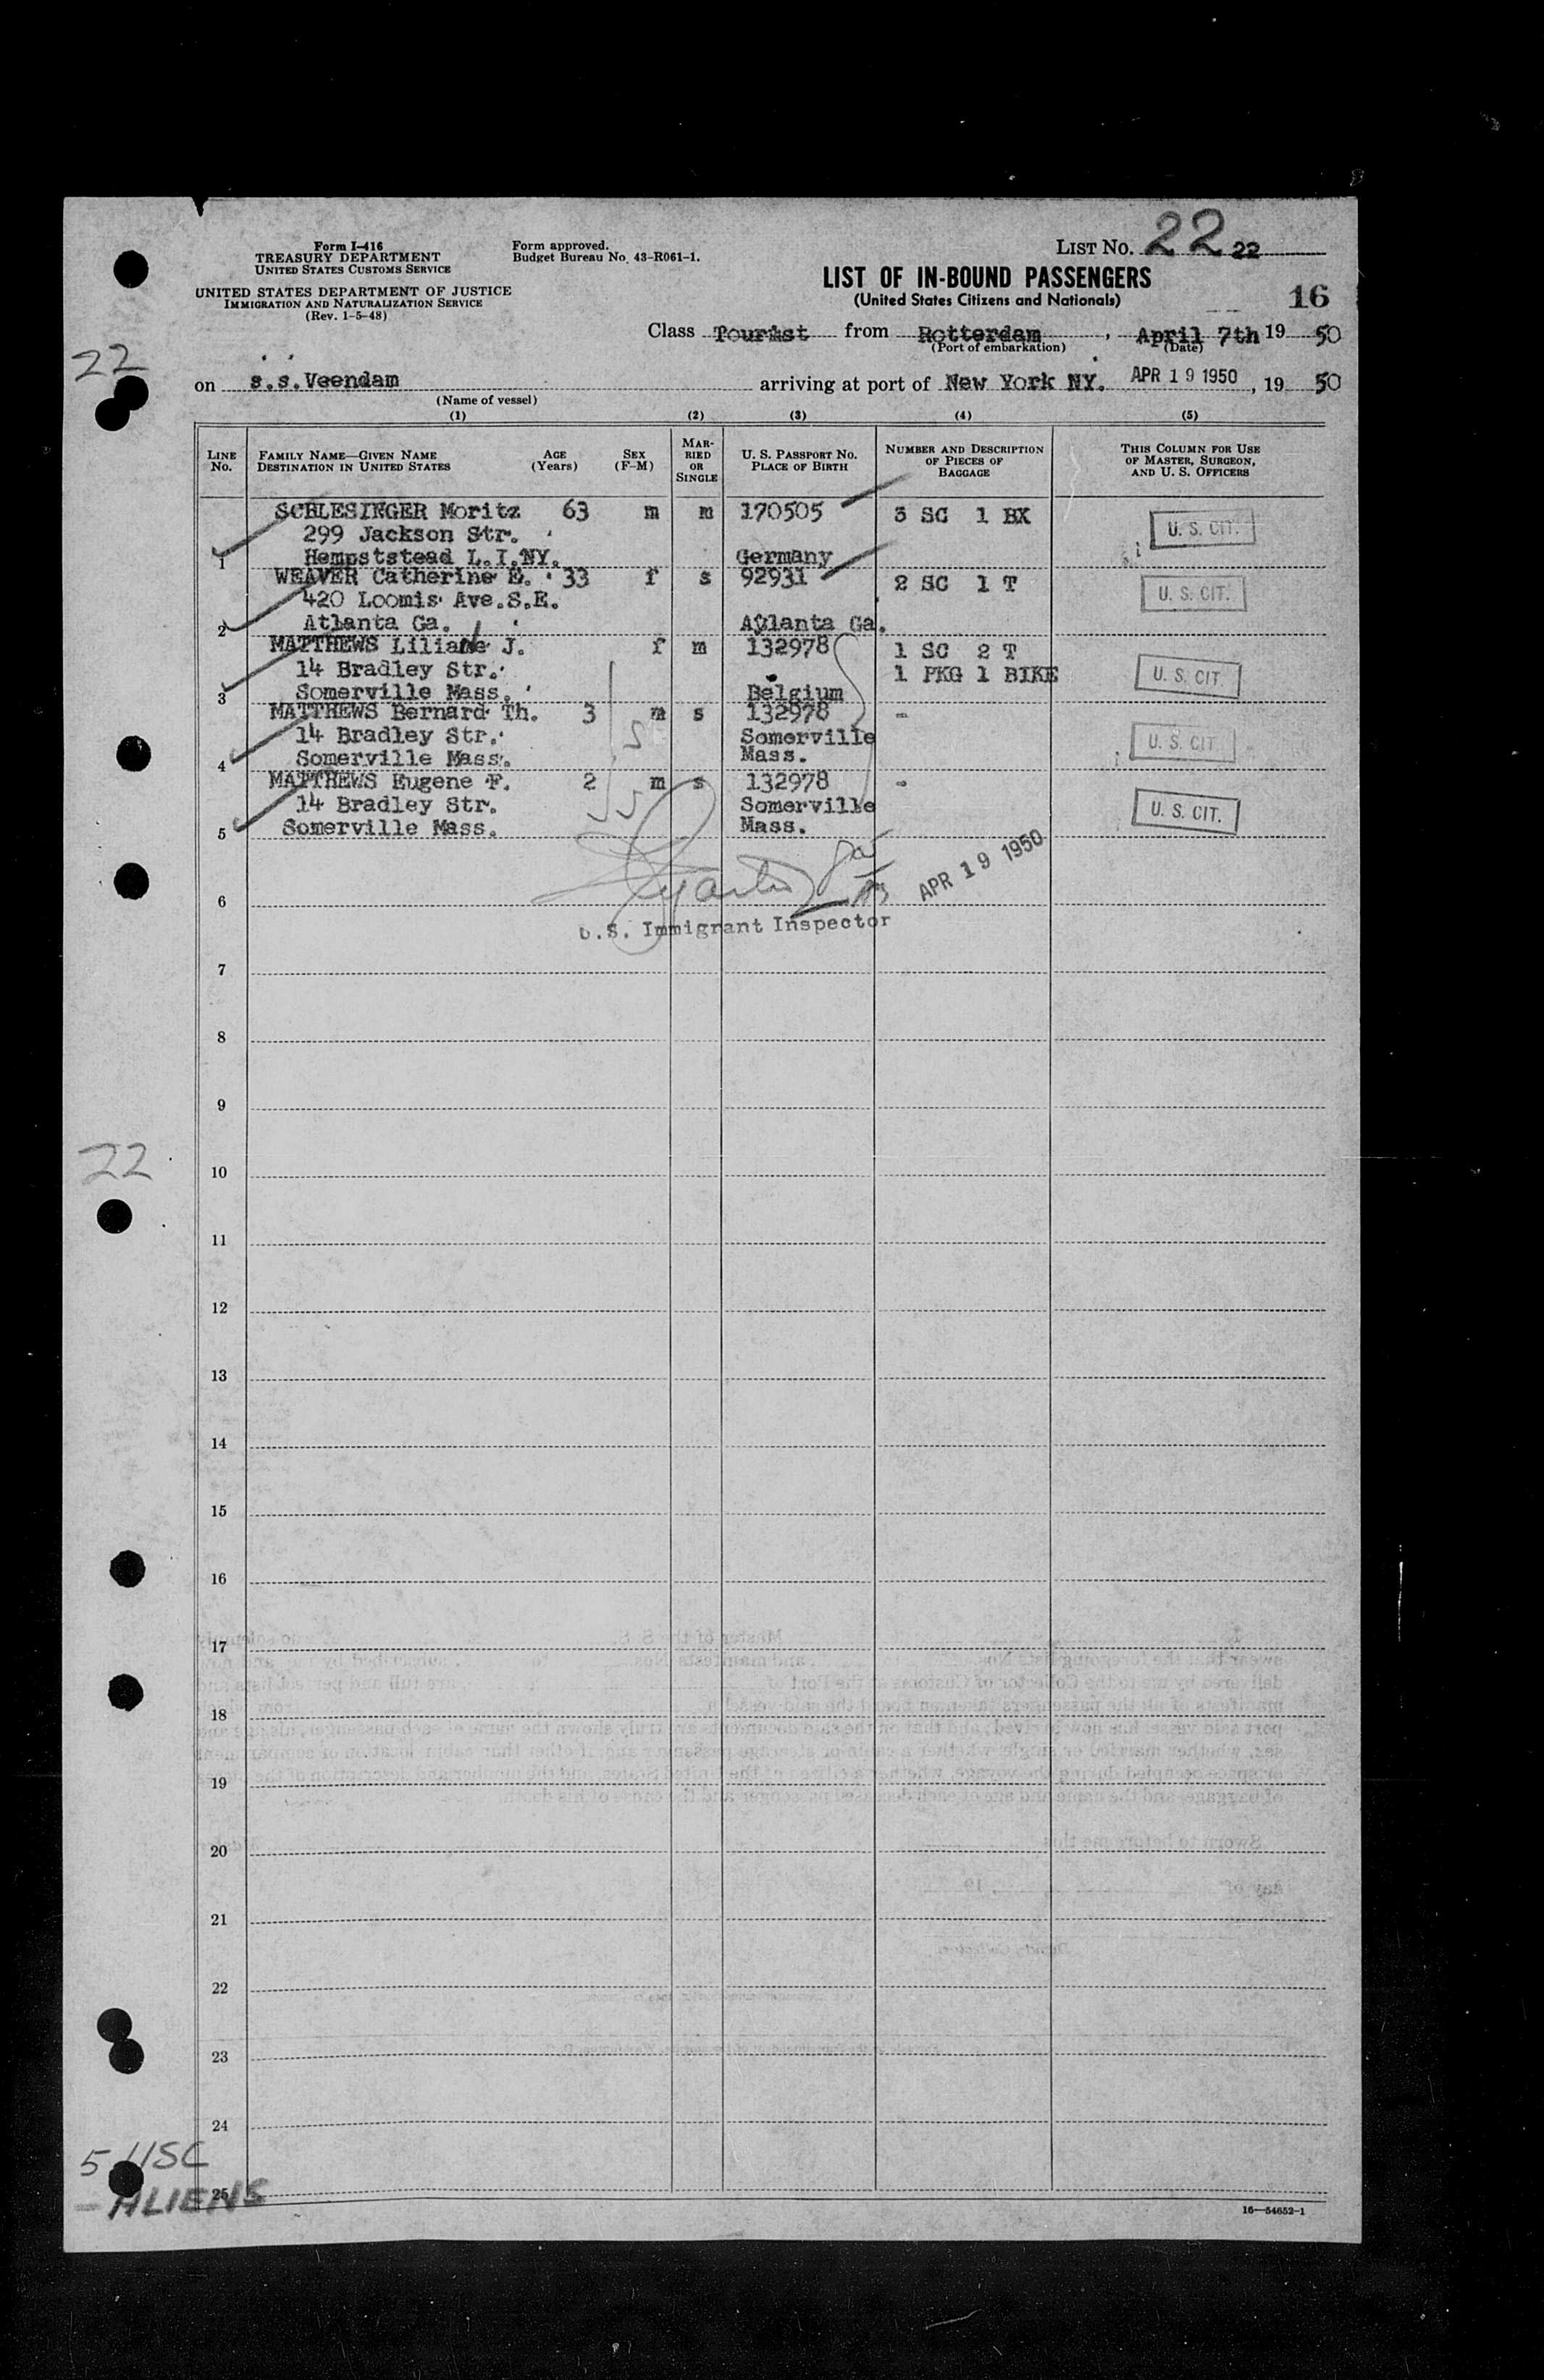 Form I-416
TREASURY DEPARTMENT
UNITED STATES CUSTOMS SERVICE
UNITED STATES DEPARTMENT OF JUSTICE
IMMIGRATION AND NATURALIZATION SERVICE
(Rev. 1-5-48)
Form approved.
Budget Bureau No. 43-R061-1.
LIST NO. 22 22
LIST OF IN-BOUND PASSENGERS
(United States Citizens and Nationals)
16
Class Tourist from Rotterdam, April 7th 19 50
(Port of embarkation) (Date)
22
on s.s.Veendam arriving at port of New York NY. APR 19 1950, 19 50
(Name of vessel)
(1) (2) (3) (4) (5)
LINE NO.
FAMILY NAME—GIVEN NAME
DESTINATION IN UNITED STATES
AGE (Years)
SEX (F-M)
MARRIED OR SINGLE
U. S. PASSPORT NO.
PLACE OF BIRTH
NUMBER AND DESCRIPTION OF PIECES OF BAGGAGE
THIS COLUMN FOR USE OF MASTER, SURGEON, AND U. S. OFFICERS
SCHLESINGER Moritz 63 m m 170505 3 SC 1 BX U. S. CIT.
299 Jackson Str.
1 Hempststead L.I.NY. Germany
WEAVER Catherine E. 33 f s 92931 2 SC 1 T U. S. CIT.
420 Loomis Ave.S.E.
2 Atlanta Ga. Atlanta Ga.
MATTHEWS Liliane J. f m 132978 1 SC 2 T
14 Bradley Str. 1 PKG 1 BIKE U. S. CIT.
3 Somerville Mass. Belgium
MATTHEWS Bernard Th. 3 m s 132978 -
14 Bradley Str. Somerville U. S. CIT.
4 Somerville Mass. Mass.
MATTHEWS Eugene F. 2 m s 132978 -
14 Bradley Str. Somerville U. S. CIT.
5 Somerville Mass. Mass.
APR 19 1950
6
U.S. Immigrant Inspector
7
8
9
22
10
11
12
13
14
15
16
17
18
19
20
21
22
23
24
5 USC
25
- ALIENS
16—54652-1